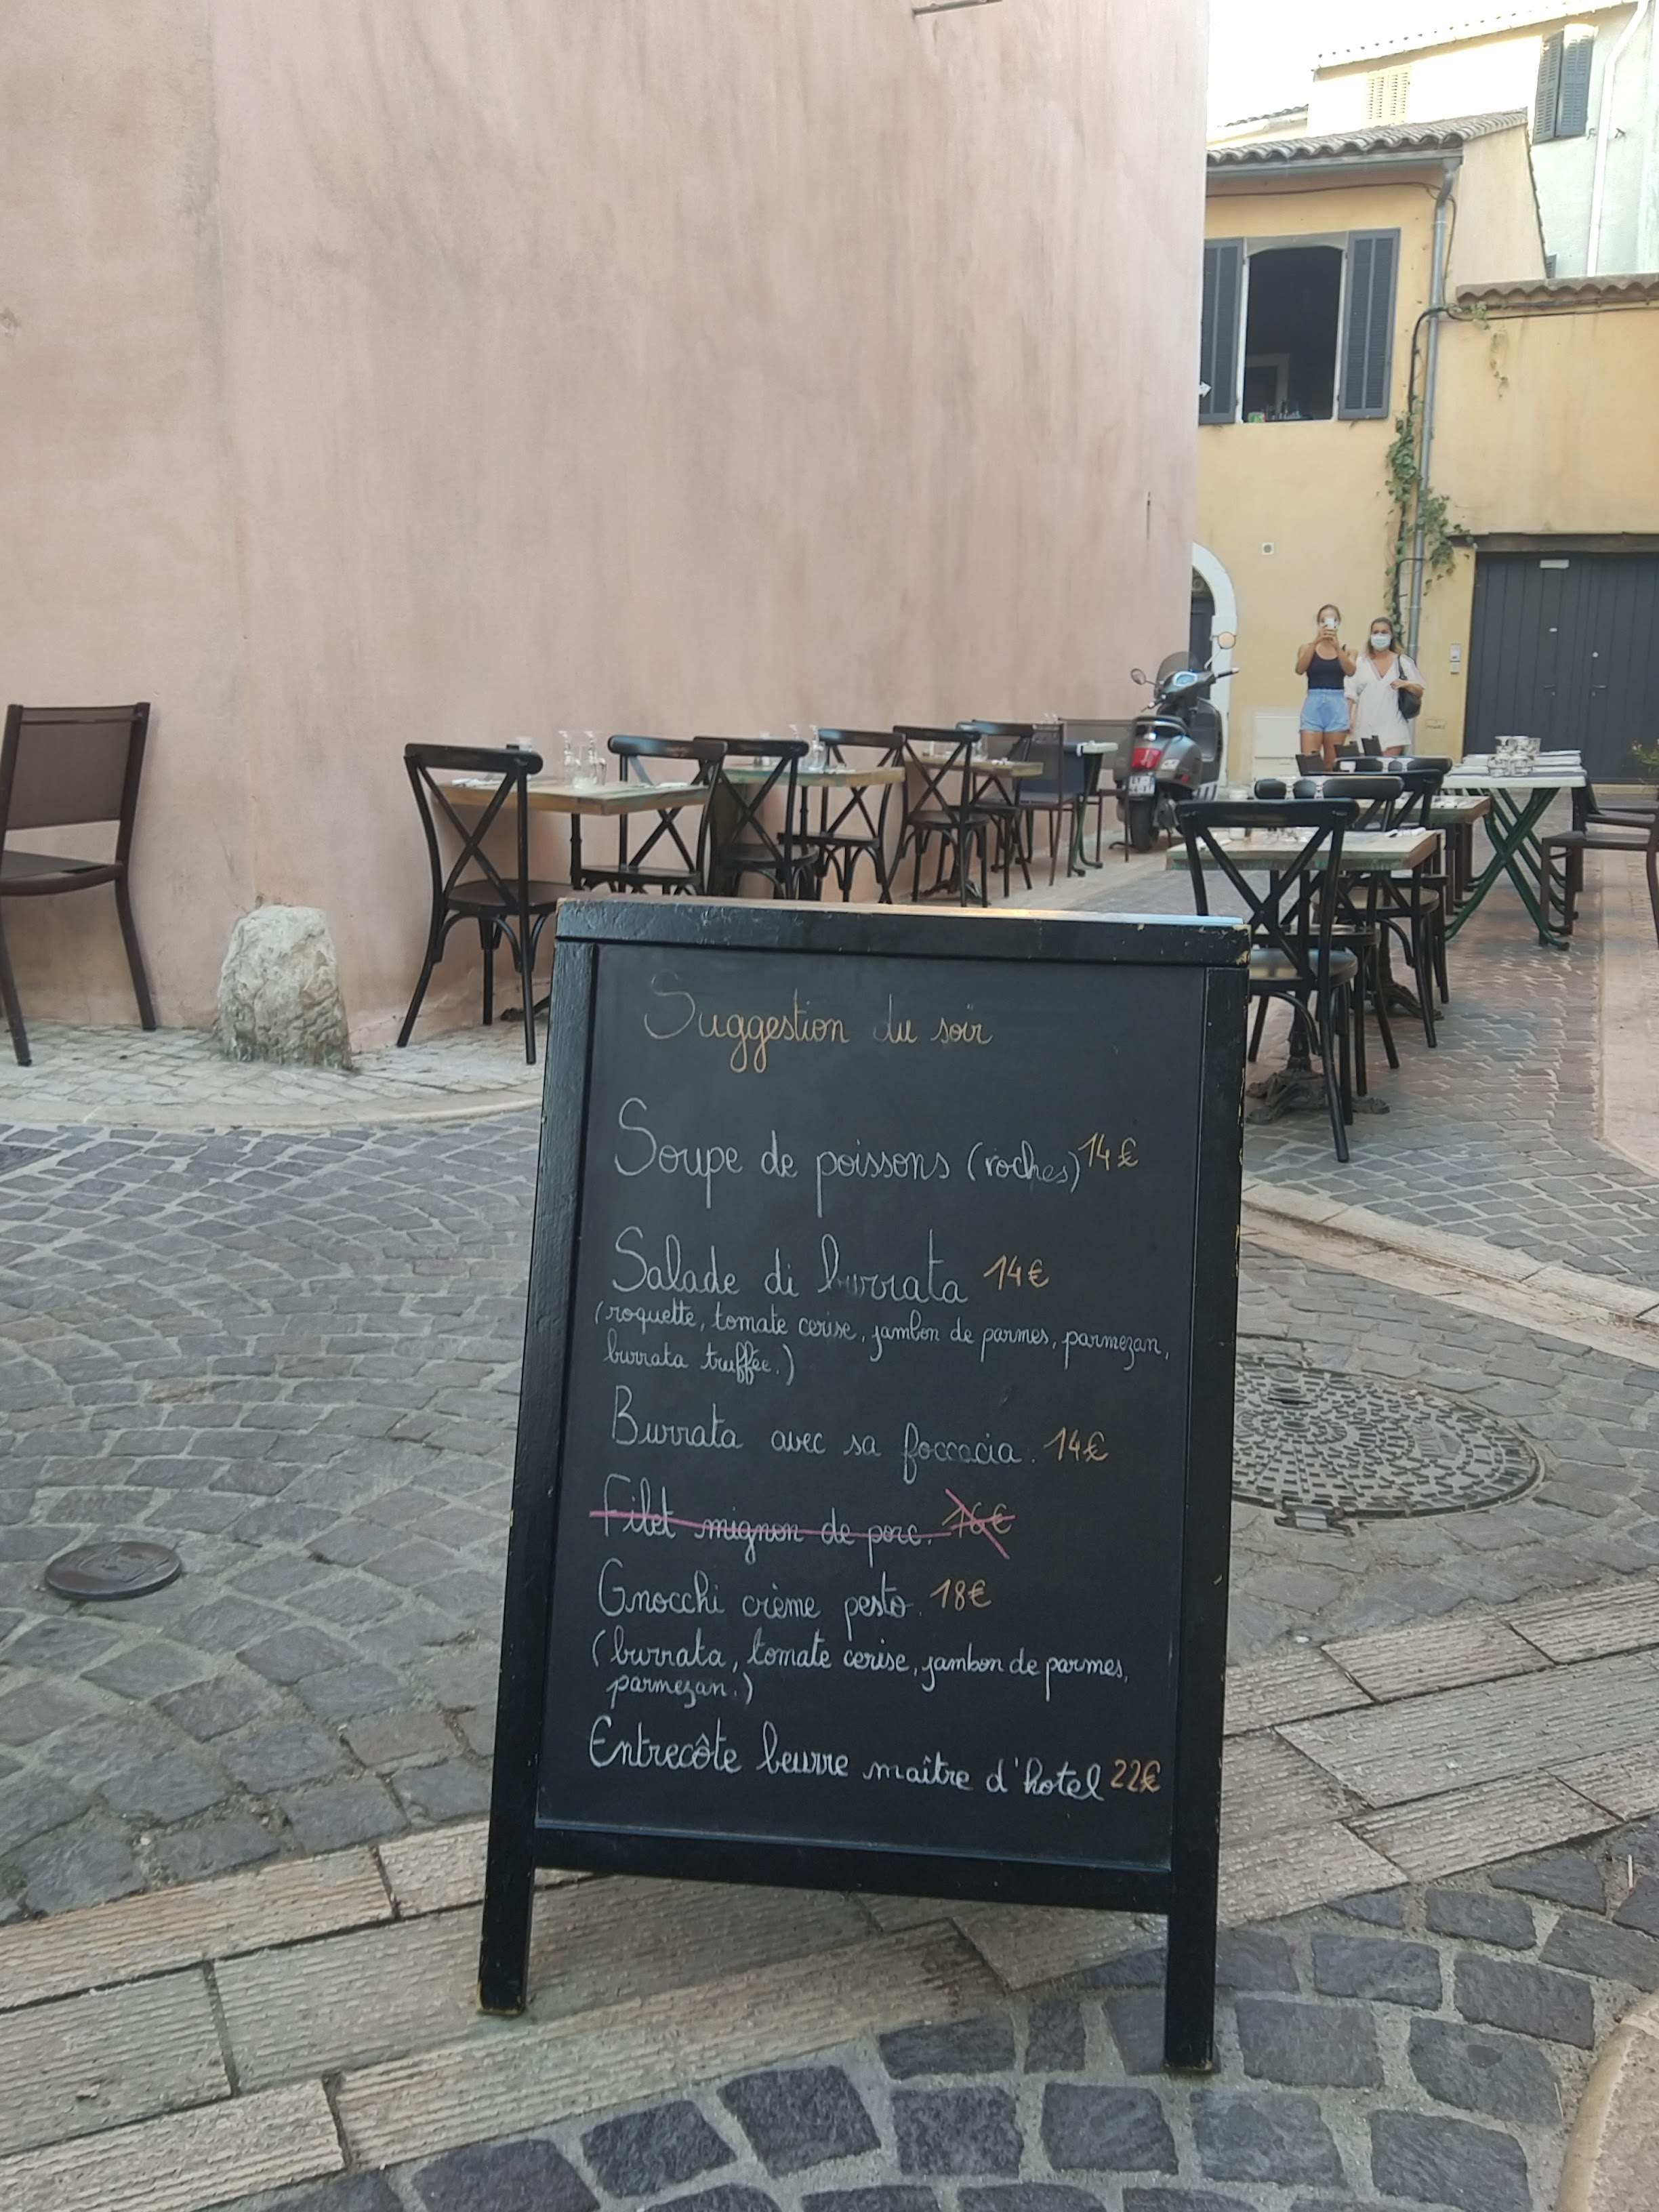 Suggestion du soir
Soupe de poissons (roches) 14€
Salade di burrata 14€
(roquette, tomate cerise, jambon de parmes, parmezan,
burrata truffée.)
Burrata avec sa foccacia. 14€
Filet mignon de porc. 16€
Gnocchi crème pesto. 18€
(burrata, tomate cerise, jambon de parmes,
parmezan.)
Entrecôte beurre maître d'hotel 22€